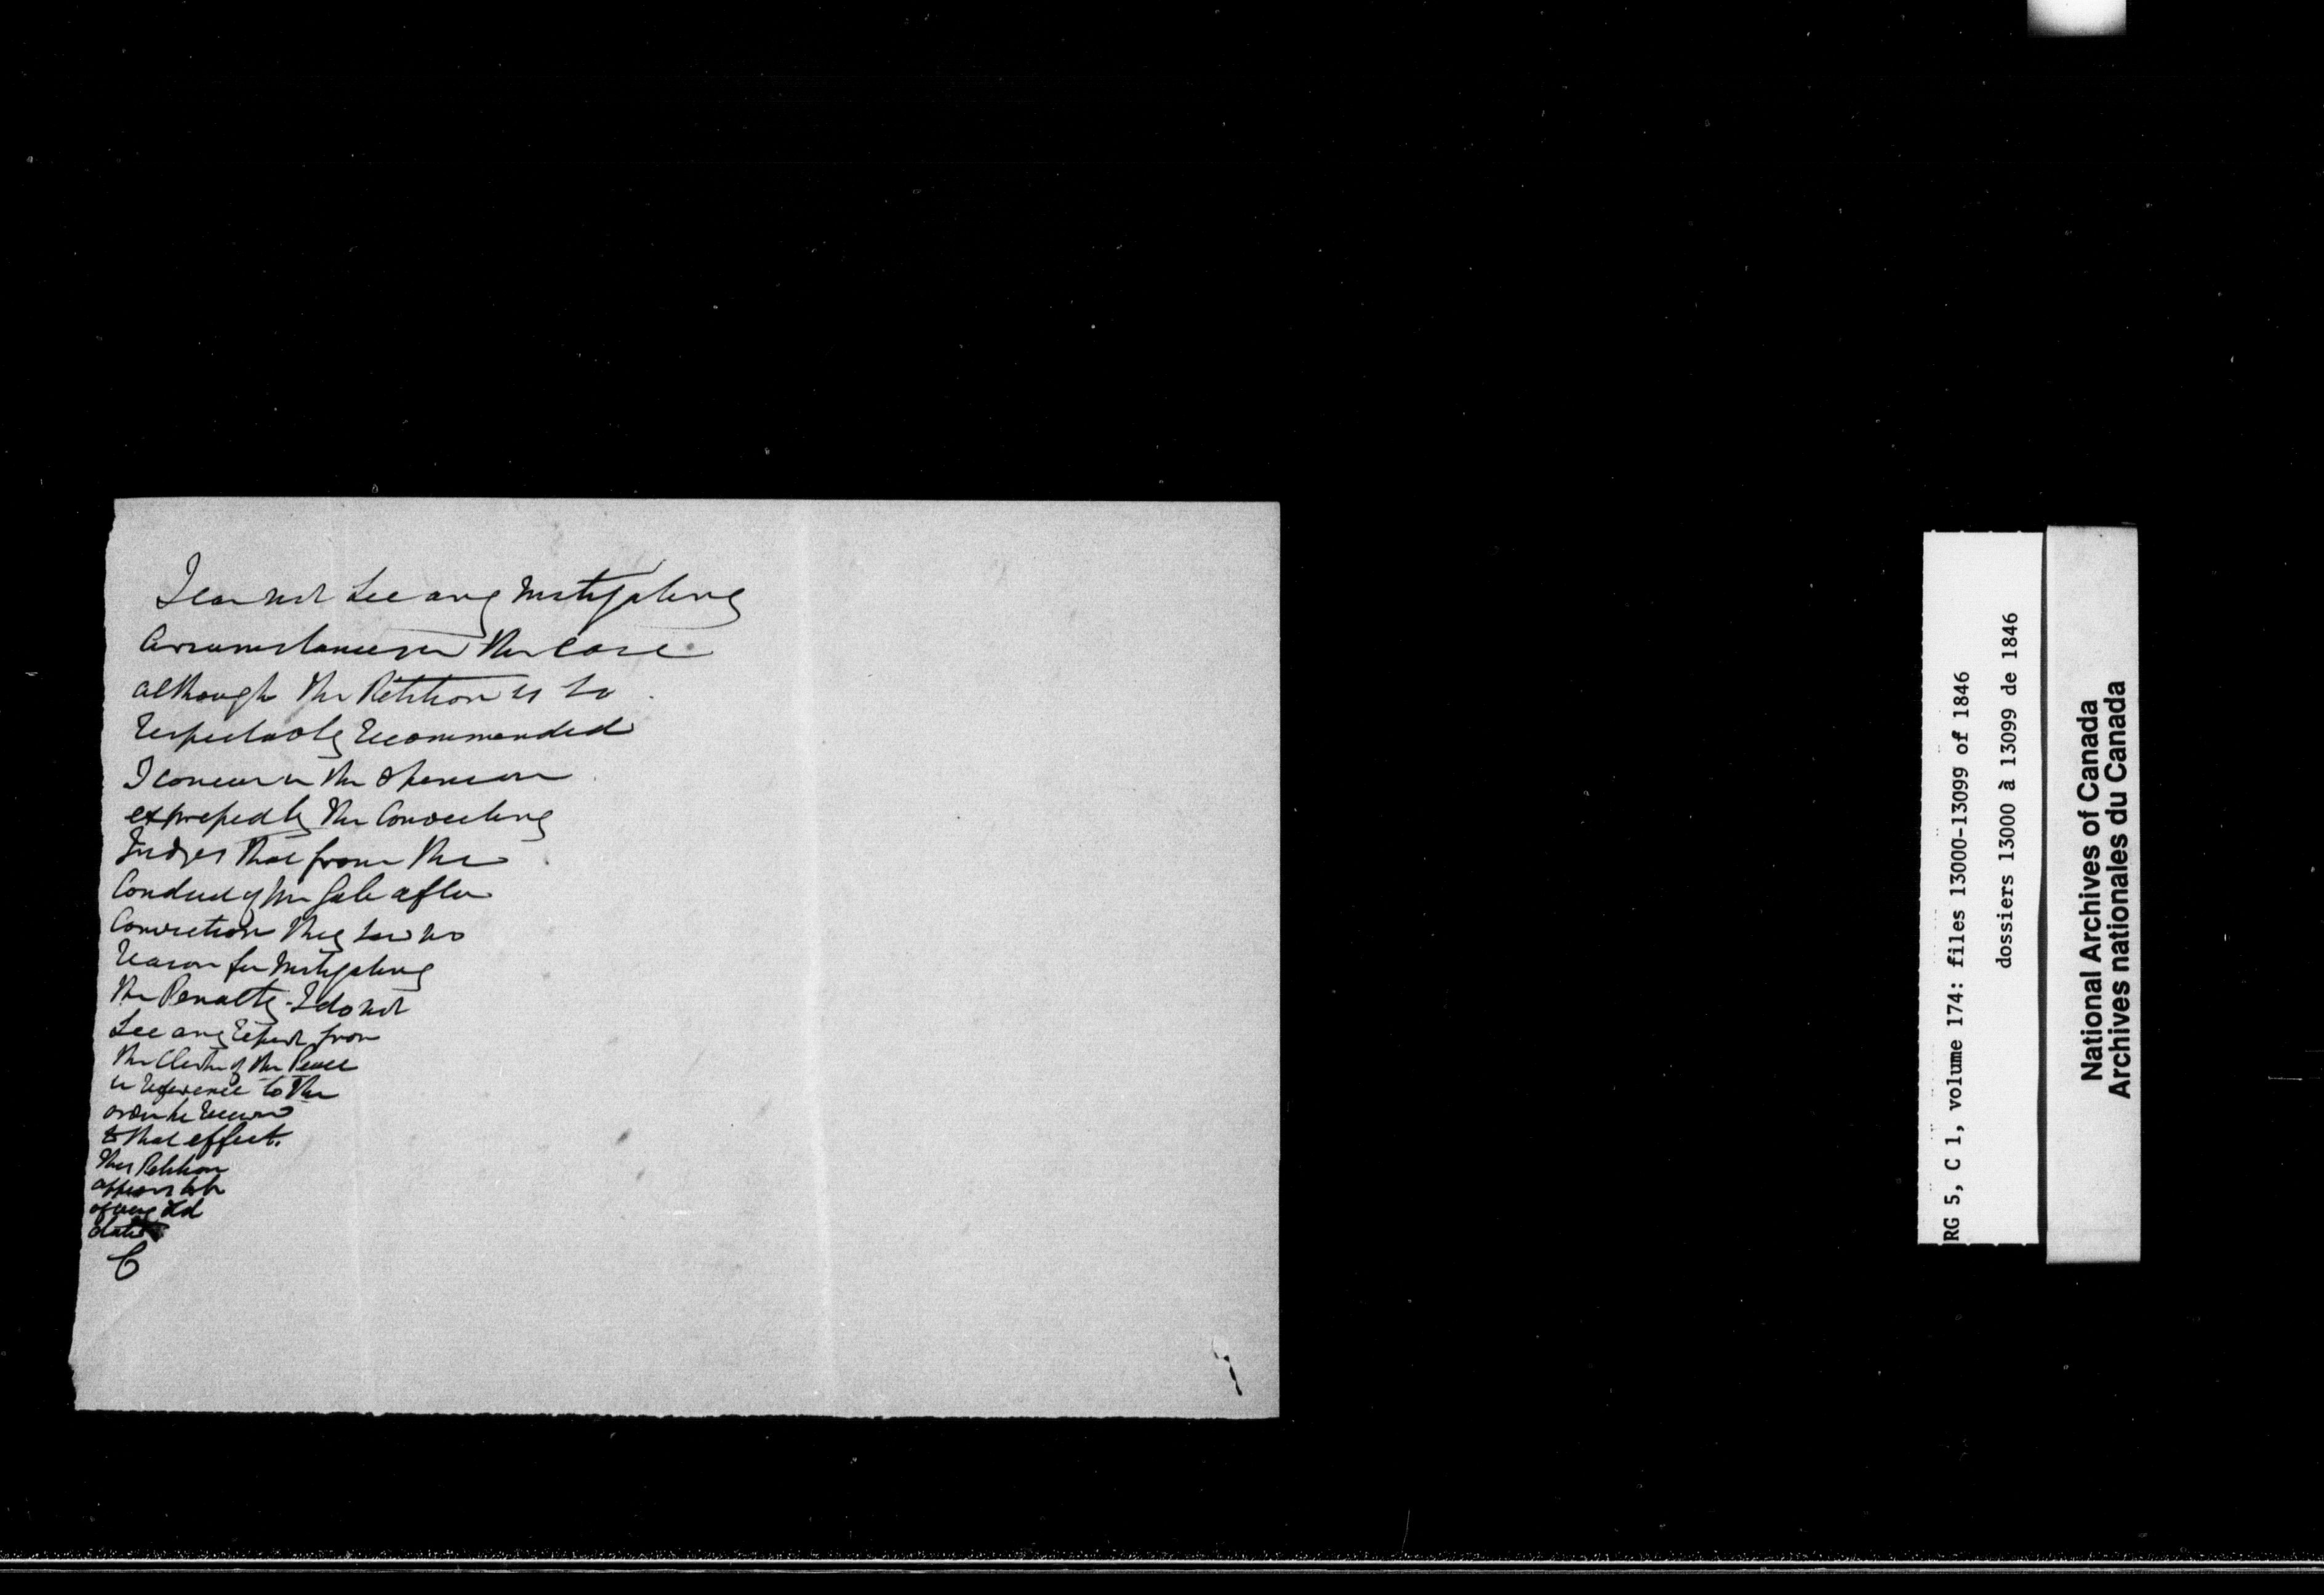 I can not see any mitigating
Circumstances in the case
although the Petition is so
respectably recommended
I concur in the opinion
expressed by the Convicting
Judges that from the
Conduct of Mr Gale after
Conviction they saw no
reason for mitigating
the Penalty - I do not
see any report from
the Clerk of the Peace
in reference to the
order he received
to that effect.
This Petition
appears to be
of very old
date
C
RG 5, C 1, volume 174: files 13000-13099 of 1846
dossiers 13000 à 13099 de 1846
National Archives of Canada
Archives nationales du Canada